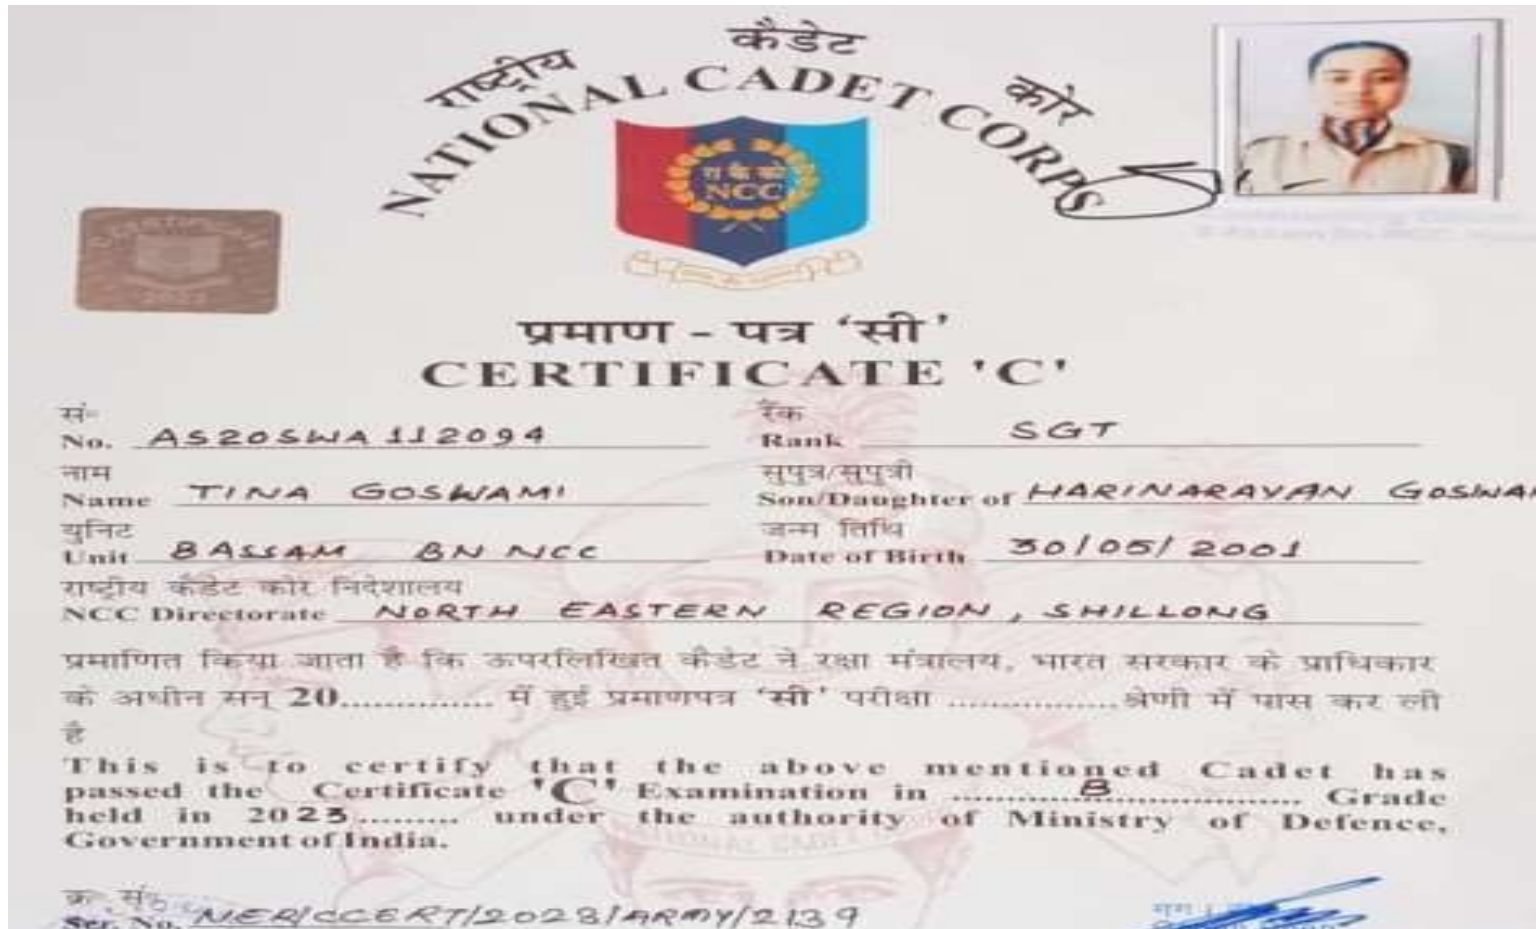 राष्ट्रीय कैडेट कोर
NATIONAL CADET CORPS
रा कै को
NCC
CERTIFICATE
2023
प्रमाण - पत्र ‘सी’
CERTIFICATE 'C'
सं॰ No. AS20SWA112094
रैंक Rank SGT
नाम Name TINA GOSWAMI
सुपुत्र/सुपुत्री Son/Daughter of HARINARAYAN
युनिट Unit 8 ASSAM BN NCC
जन्म तिथि Date of Birth 30/05/2001
राष्ट्रीय कैडेट कोर निदेशालय
NCC Directorate NORTH EASTERN REGION, SHILLONG
प्रमाणित किया जाता है कि ऊपरलिखित कैडेट ने रक्षा मंत्रालय, भारत सरकार के प्राधिकार
के अधीन सन् 20.............. में हुई प्रमाणपत्र ‘सी’ परीक्षा ................श्रेणी में पास कर ली
है
This is to certify that the above mentioned Cadet has
passed the Certificate 'C' Examination in ........B........ Grade
held in 2023......... under the authority of Ministry of Defence,
Government of India.
क्र॰ सं॰
Ser. No. NER/CCERT/2023/ARMY/2139